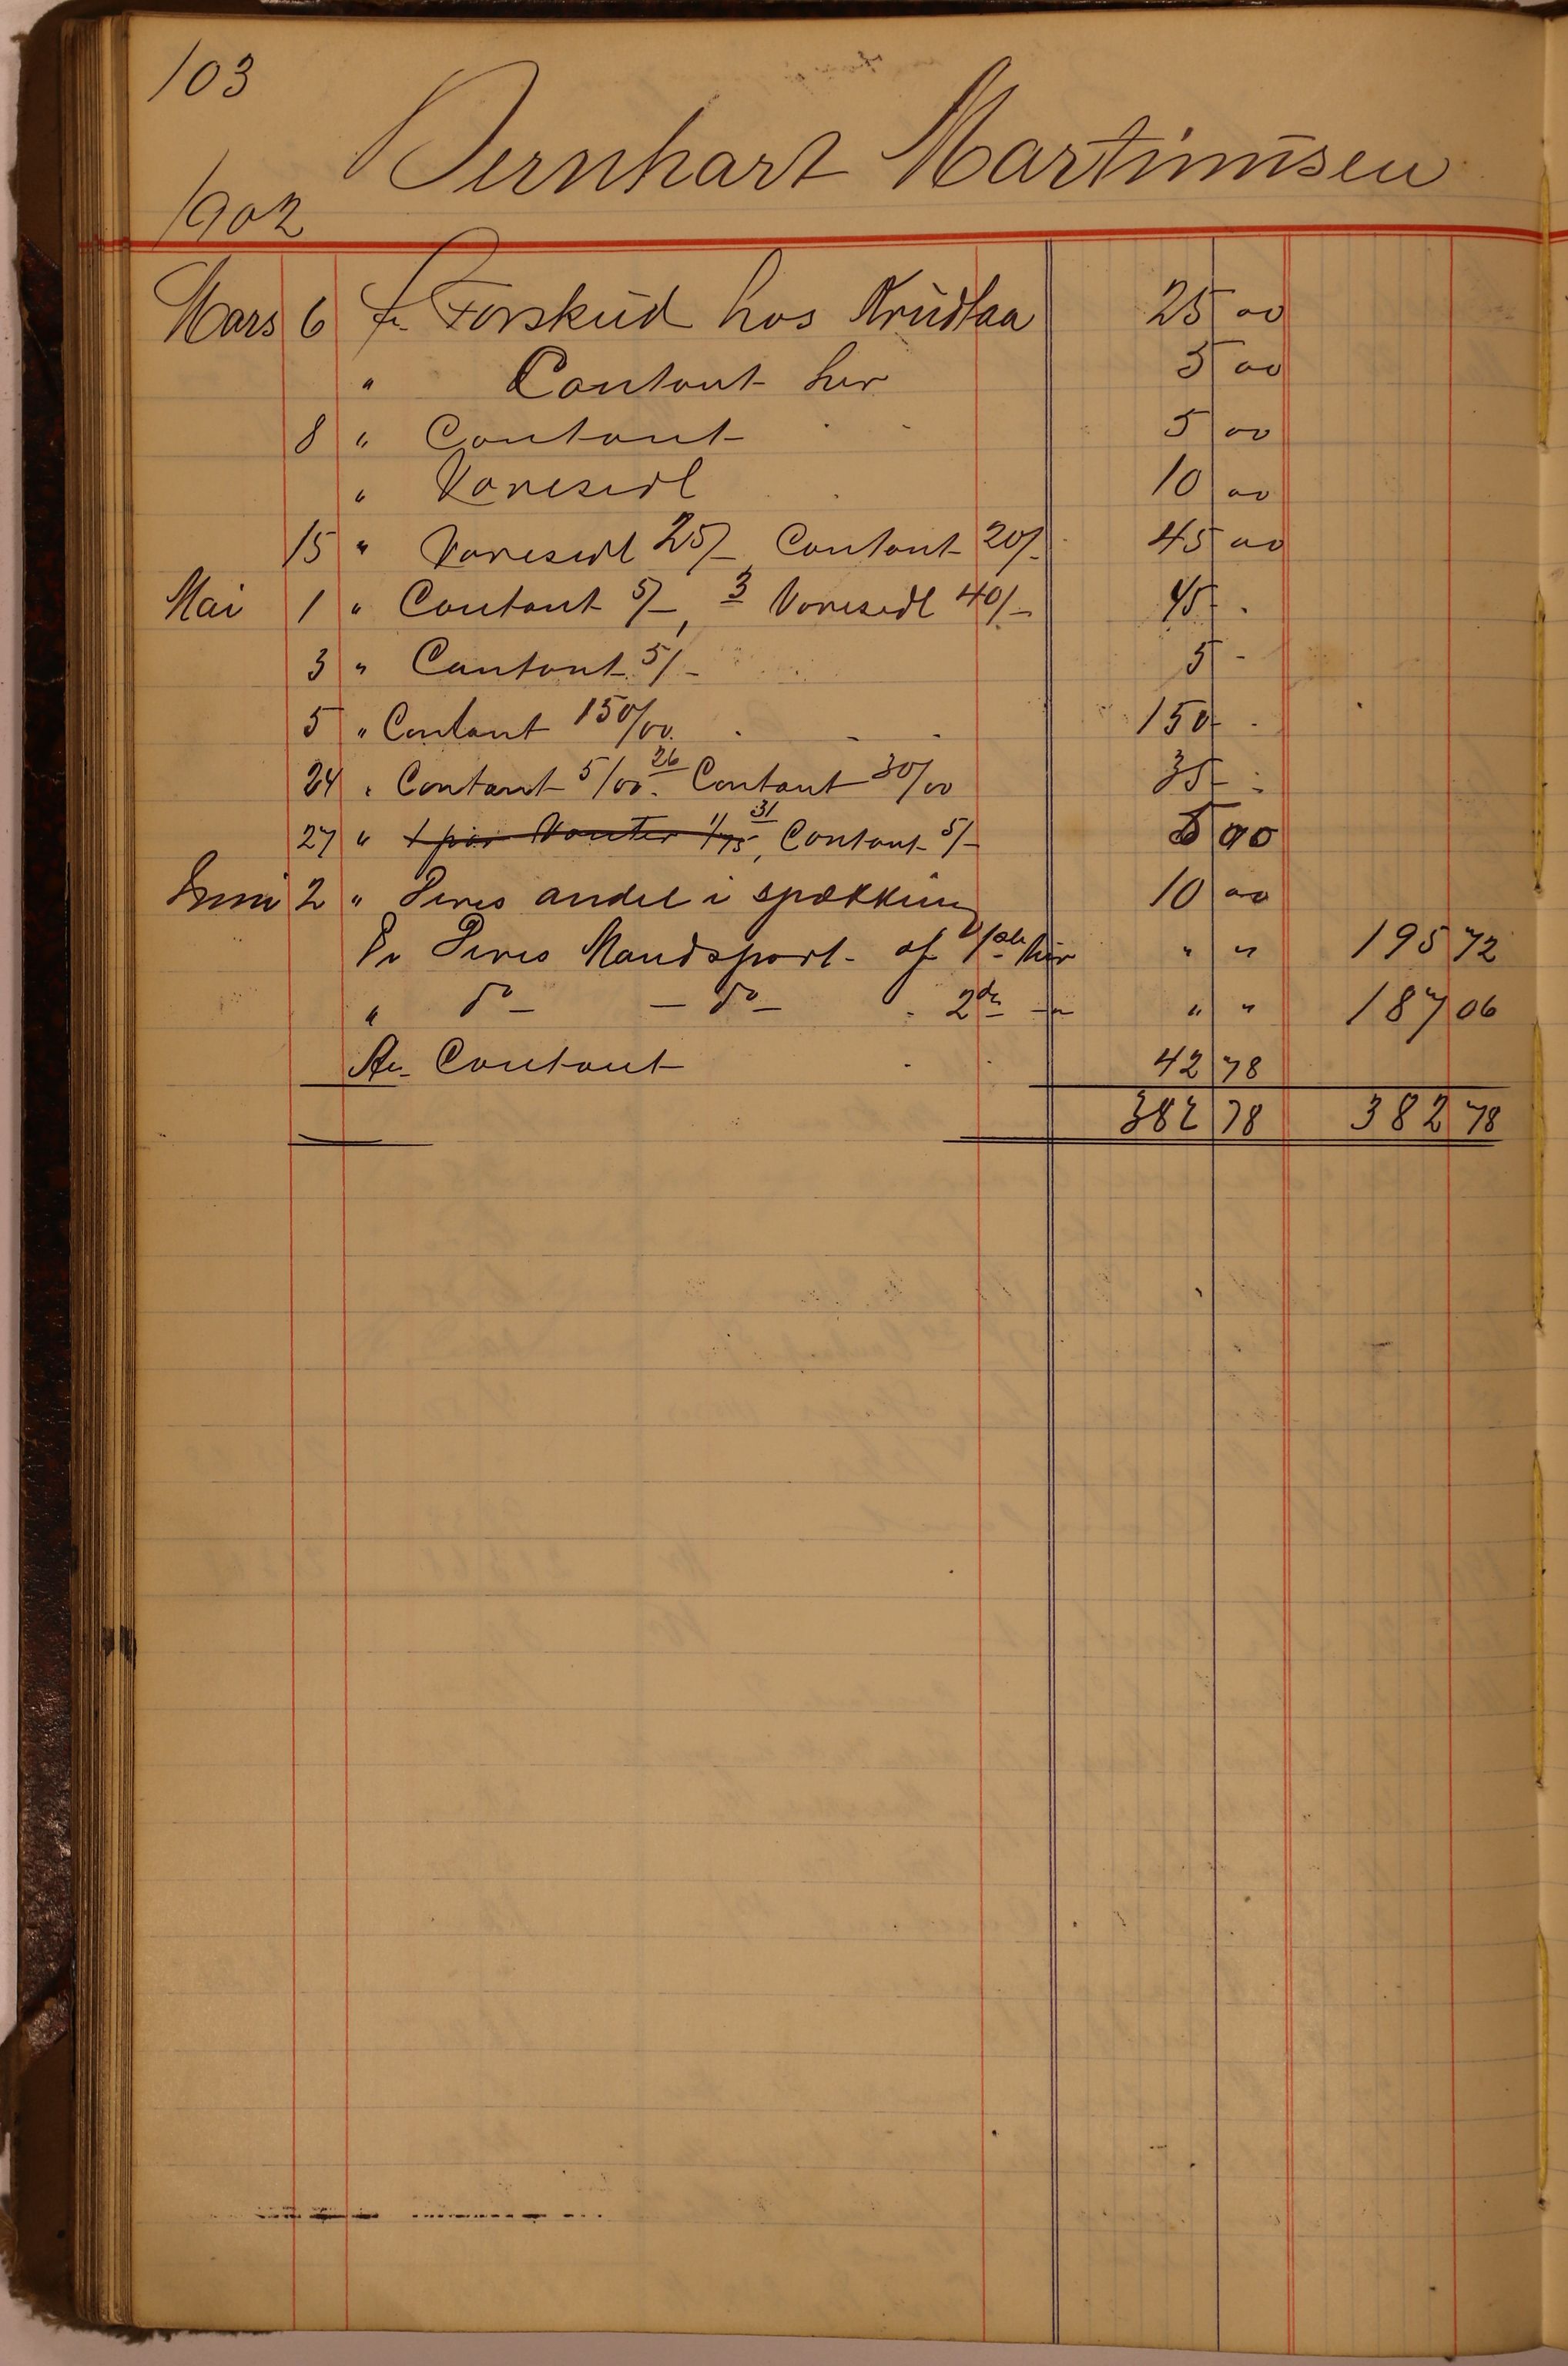 103
Bernhart Martinusen
1902
Mars 6 An Forskud hos Krüdtaa 25 00
" Contant her 5 00
8 " Contant 5 00
" Varesedl 10 00
15 " Varesedl 25/- Contant 20/- 45 00
Mai 1 " Contant 5/-, 3 Varesedl 40/- 45 -
3 " Contant 5/- 5 -
5 " Contant 150/00 150 -
24 " Contant 5/00. 26 Contant 30/00 35 -
27 " 1 par Vanter 1/75, 31 Contant 5/- 5 00
Juni 2 " Deres andel i spækking 10 00
Pr Deres Mandspart af 1ste tür " " 195 72
" do - do - 2den - " " " 187 06
An Contant 42 78
382 78 382 78